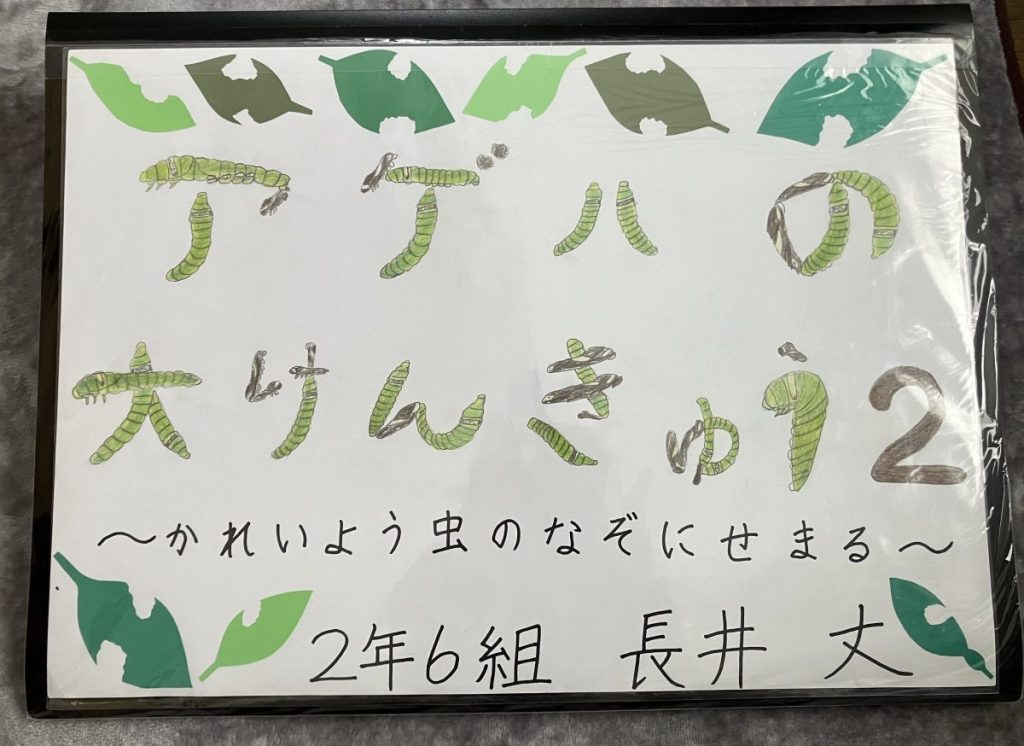 アゲハの
大けんきゅう2
～かれいよう虫のなぞにせまる～
2年6組 長井 丈